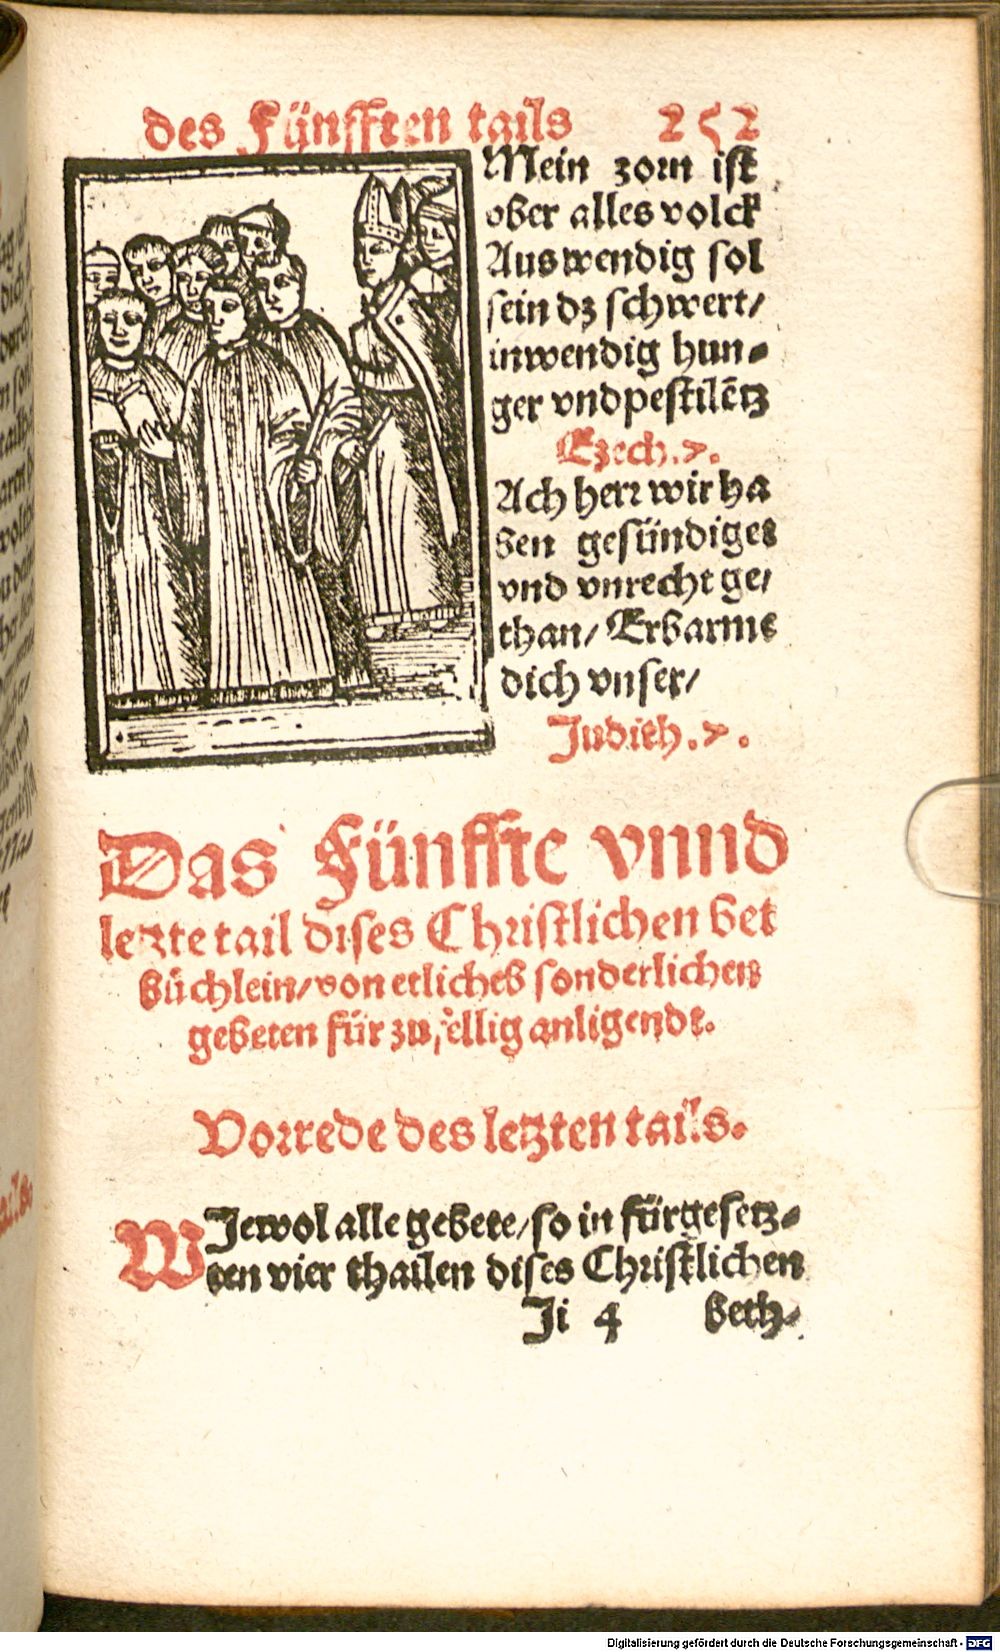 des Fünfften tails 252
Mein zorn ist
vber alles volck
Auswendig sol
sein dz schwert/
inwendig hun-
ger vnd pestilētz
Ezech. 7.
Ach herr wir ha
ben gesündiget
vnd vnrecht ge/
than/ Erbarme
dich vnser/
Judith. 7.
Das Fünffte vnnd
letzte tail dises Christlichen bet
büchlein/ von etlichē sonderlichen
gebeten für zufellig anligendt.
Vorrede des letzten tails.
WJewol alle gebete/ so in fürgesetz-
ten vier thailen dises Christlichen
Ji 4 Beth-
Digitalisierung gefördert durch die Deutsche Forschungsgemeinschaft - DFG